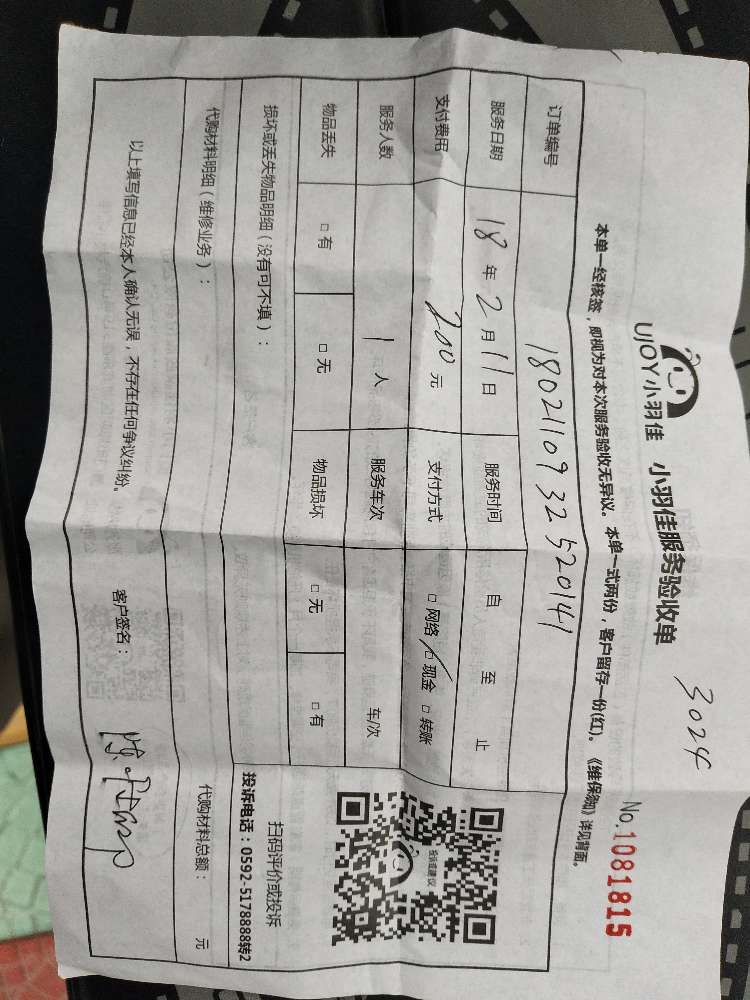 3024
UJOY小羽佳 小羽佳服务验收单 No.1081815
本单一经核签，即视为对本次服务验收无异议。本单一式两份，客户留存一份(红)。《维保细则》详见背面。
订单编号 1802110932520141
服务日期 18年2月11日 服务时间 自 至 止
支付费用 200元 支付方式 □网络 □现金 □转账
服务人数 1人 服务车次 车/次
物品丢失 □有 □无 物品损坏 □无 □有
损坏或丢失物品明细（没有可不填）：
扫码评价或投诉
投诉电话：0592-5178888转2
代购材料明细（维修业务）：
代购材料总额： 元
以上填写信息已经本人确认无误，不存在任何争议纠纷。 客户签名：